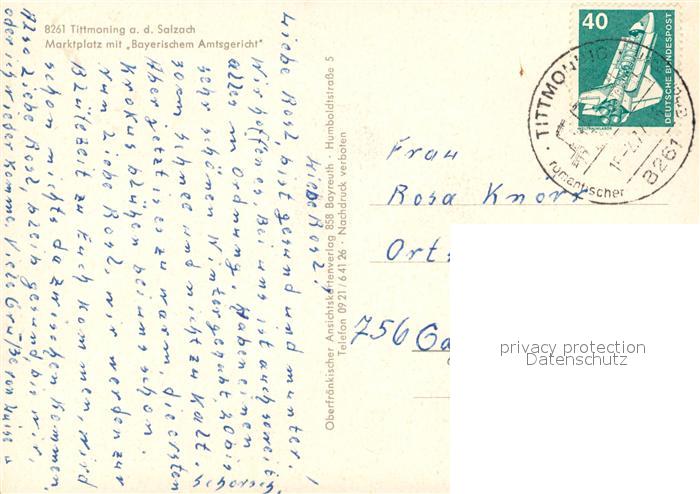 8261 Tittmoning a. d. Salzach
Marktplatz mit „Bayerischem Amtsgericht"
Liebe Rosl,
Liebe Rosl, bist gesund und munter.
Wir hoffen es. Bei uns ist auch soweit
alles in Ordnung. Haben einen
sehr schönen Winter gehabt, 20 bis
30 cm Schnee und nicht zu kalt.
Aber jetzt ist es zu warm, die ersten
Krokus blühen bei uns schon.
Nun liebe Rosl, wir werden zur
Blütezeit zu Euch kommen, wird
schon nichts dazwischen kommen.
Also liebe Rosl, bleib gesund, bis wir,
oder ich wieder komme. Viele Grüße von Luise u
Schorsch
Oberfränkischer Ansichtskartenverlag 858 Bayreuth · Humboldtstraße 5
Telefon 0921/64126 · Nachdruck verboten
40
DEUTSCHE BUNDESPOST
WELTRAUMLABOR
TITTMONING
romantischer
8261
Frau
Rosa Knorr
Ort
756 Ga
privacy protection
Datenschutz